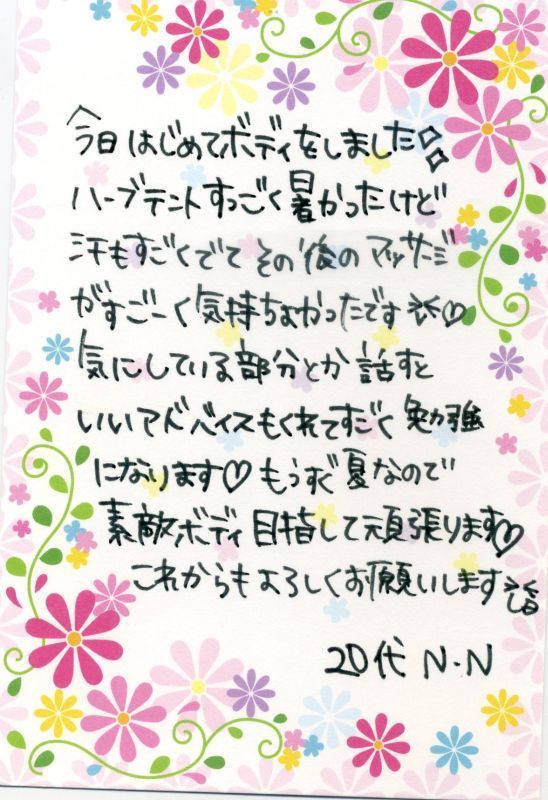 今日はじめてボディをしました
ハーブテントすっごく暑かったけど
汗もすごくでてその後のマッサージ
がすごーく気持ちよかったです♡
気にしている部分とか話すと
いいアドバイスもくれてすごく勉強
になります♡もうすぐ夏なので
素敵ボディ目指して頑張ります♡
これからもよろしくお願いします
20代 N・N